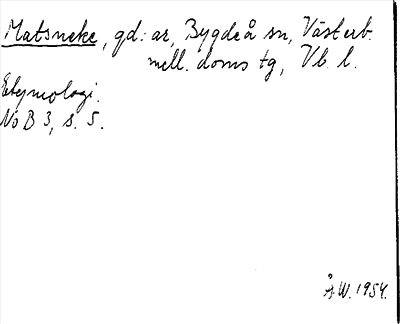 Matsneke, gd:ar, Bygdeå sn, Västerb.
mell. doms tg, Vb. l.
Etymologi.
NoB 3, s. 5.
Å W. 1954.